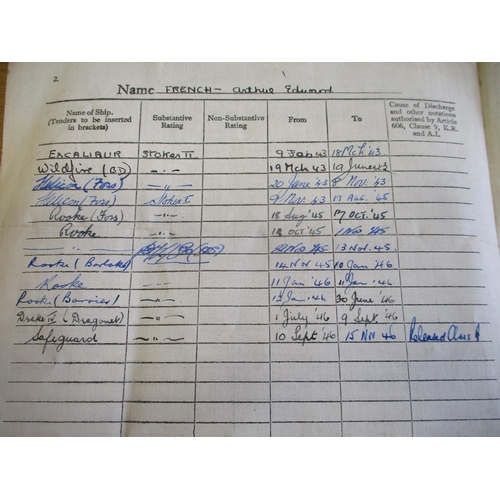 2
Name FRENCH - Arthur Edward
Name of Ship. (Tenders to be inserted in brackets) Substantive Rating Non-Substantive Rating From To Cause of Discharge and other notations authorised by Article 606, Clause 9, K.R. and A.I.
EXCALIBUR Stoker II 9 Feb 43 18 Mch '43
Wildfire (BD) -"- 19 Mch 43 19 June 43
(Fors) -"- 20 June '43 8 Nov. '43
(Fors) Stoker I 9 Nov. '43 17 Aug. '45
Rooke (Fors) -"- 18 Aug '45 17 Oct. '45
Rooke -"- 18 Oct '45 1 Nov '45
-"- 13 Nov. 45.
Rooke -"- 14 Nov 45 10 Jan '46
Rooke -"- 11 Jan '46 11 Jan '46
Rooke (Barrier) -"- 12 Jan '46 30 June '46
Drake IV (Dragonet) -"- 1 July '46 9 Sept '46
Safeguard -"- 10 Sept '46 15 Nov 46 Released Class A